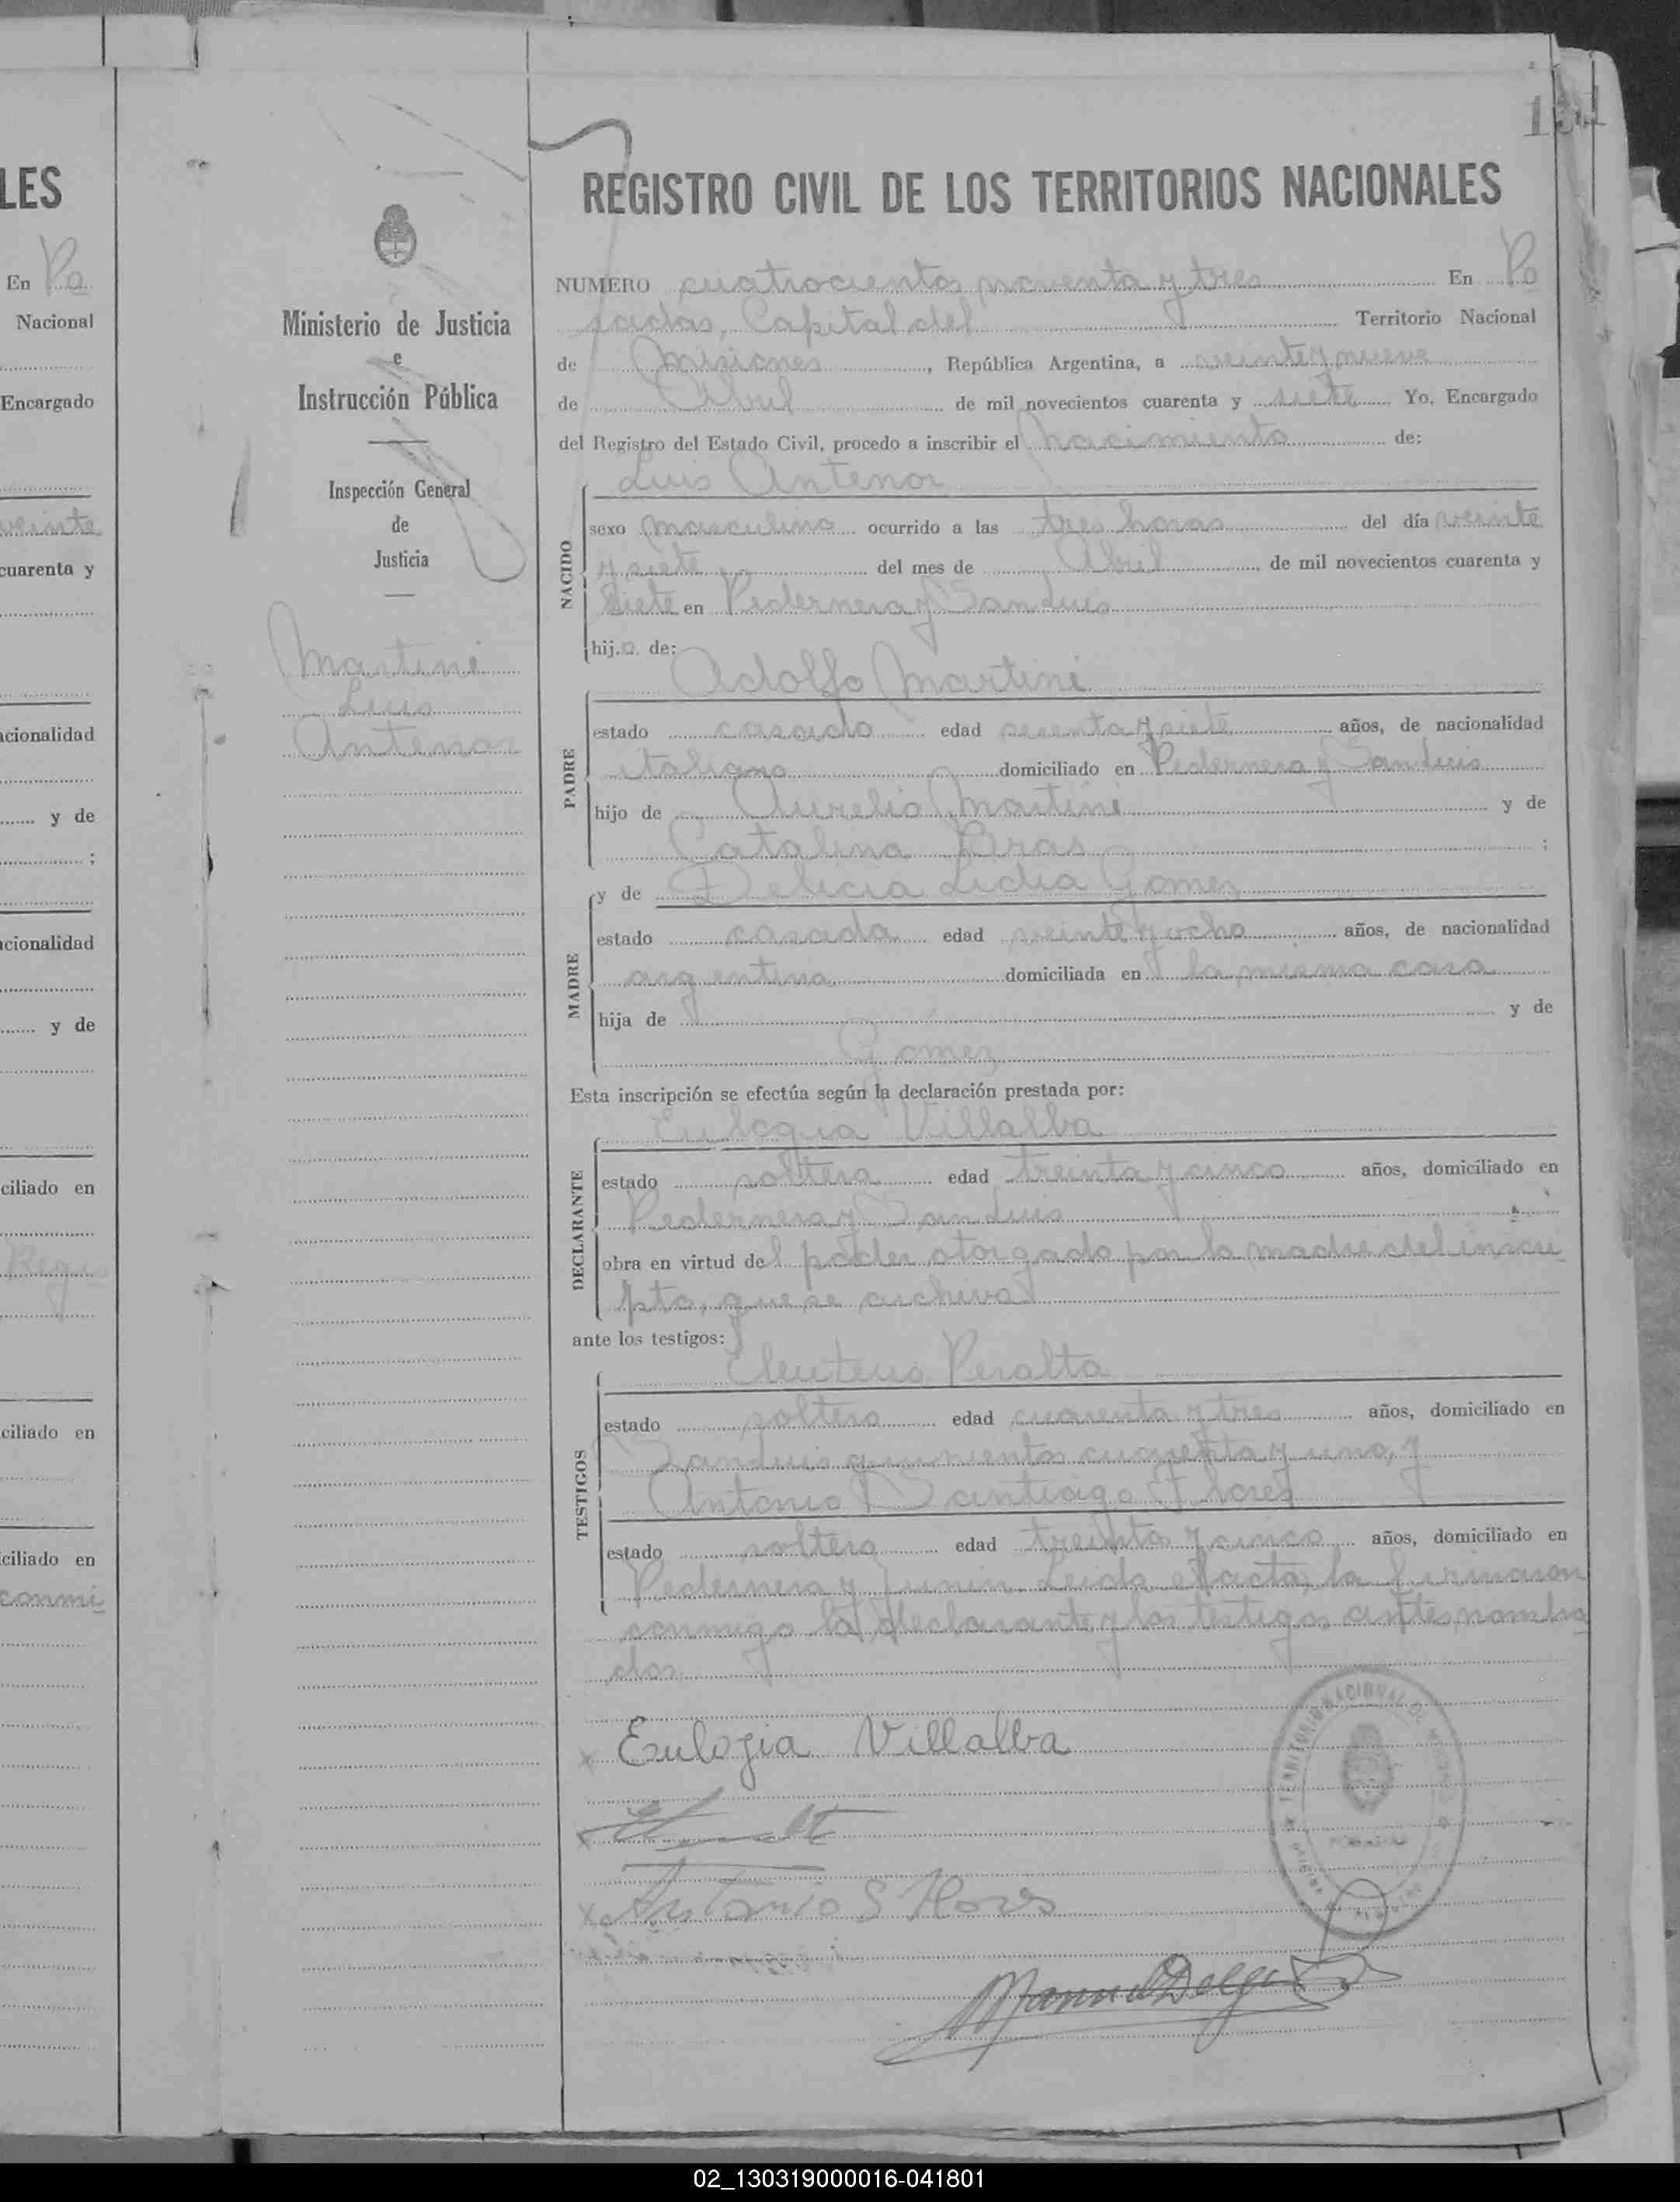 LES
En Po
Nacional
Encargado
veinte
cuarenta y
acionalidad
y de
;
acionalidad
y de
ciliado en
Regis
ciliado en
ciliado en
conmi
Ministerio de Justicia
e
Instrucción Pública
Inspección General
de
Justicia
Martini
Luis
Antenor
REGISTRO CIVIL DE LOS TERRITORIOS NACIONALES
NUMERO cuatrocientos noventa y tres En Po
sadas, Capital del Territorio Nacional
de Misiones, República Argentina, a veinte y nueve
de Abril de mil novecientos cuarenta y siete Yo, Encargado
del Registro del Estado Civil, procedo a inscribir el nacimiento de:
Luis Antenor
NACIDO
sexo masculino ocurrido a las tres horas del día veinte
y siete del mes de Abril de mil novecientos cuarenta y
siete en Pedernera y San Luis
hijo de:
Adolfo Martini
PADRE
estado casado edad sesenta y siete años, de nacionalidad
italiana domiciliado en Pedernera y San Luis
hijo de Aurelio Martini y de
Catalina Bras ;
y de Delicia Lidia Gomez
MADRE
estado casada edad veinte y ocho años, de nacionalidad
argentina domiciliada en la misma casa
hija de y de
Gomez
Esta inscripción se efectúa según la declaración prestada por:
Eulogia Villalba
DECLARANTE
estado soltera edad treinta y cinco años, domiciliado en
Pedernera y San Luis
obra en virtud del poder otorgado por la madre del inscri
pto, que se archiva
ante los testigos:
Eleuterio Peralta
TESTIGOS
estado soltero edad cuarenta y tres años, domiciliado en
San Luis quinientos cuarenta y uno, y
Antonio Santiago Flores
estado soltero edad treinta y cinco años, domiciliado en
Pedernera y Junin. Leida el acta, la firmaron
conmigo la declarante y los testigos antes nombra
dos
x Eulogia Villalba
x Antonio S Flores
TERRITORIO NACIONAL DE MISIONES
Manuel Delga
02_130319000016-041801